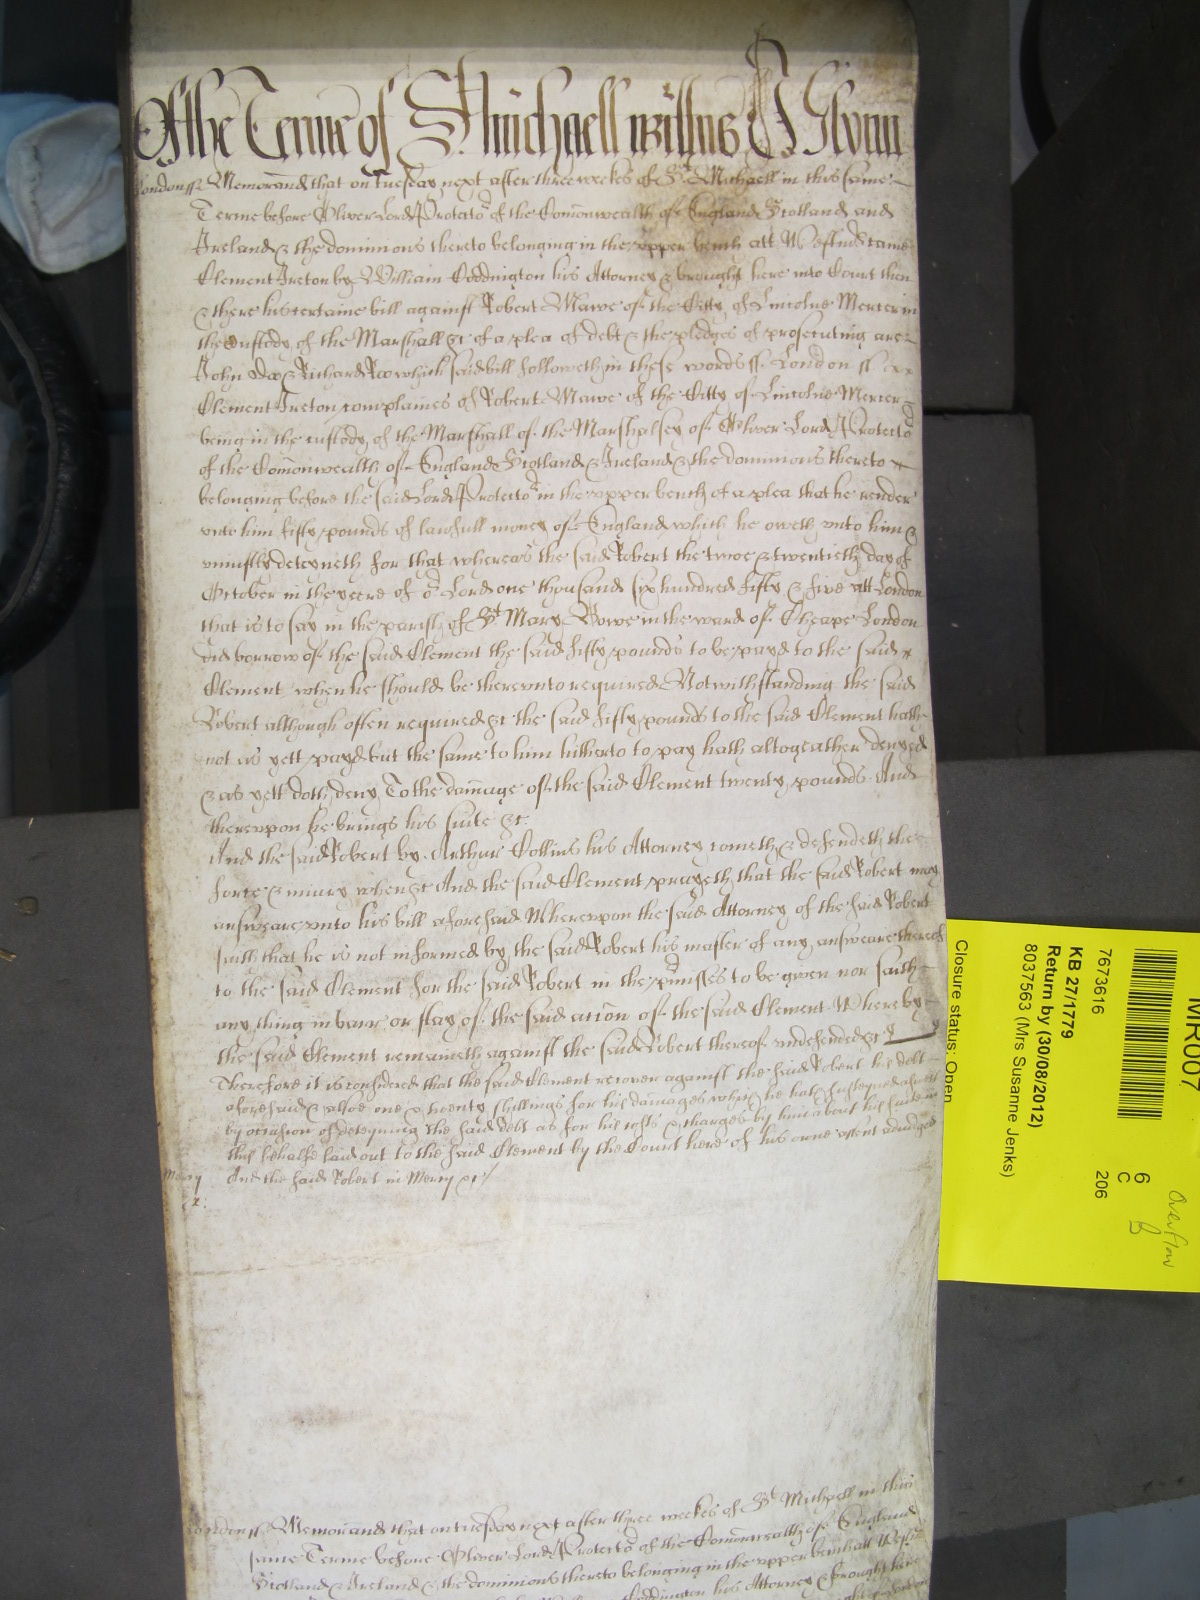 Of the Terme of St Michaell witnes J Glynn
London ss Memorand that on Tuesday next after three weekes of St Michaell in this same
Terme before Oliver Lord Protector of the Comonwealth of England Scotland and
Ireland & the dominions thereto belonging in the upper bench att Westmr came
Clement Ireton by William Coddington his Attorney & brought here into Court then
& there his certaine bill against Robert Mawe of the Citty of Lincolne Mercer in
the Custody of the Marshall &c of a plea of debt & the pledges of prosecuting are
John Doo & Richard Roo which said bill followeth in these words ss London ss
Clement Ireton complaines of Robert Mawe of the Citty of Lincolne Mercer
being in the custody of the Marshall of the Marshalsey of Oliver Lord Protector
of the Comonwealth of England Scotland & Ireland & the dominions thereto
belonging before the said Lord Protector in the upper bench of a plea that he render
unto him fifty pounds of lawfull money of England which he oweth unto him &
uniustly deteyneth for that whereas the said Robert the twoe & twentieth day of
October in the yeere of or Lord one thousand six hundred fifty & five att London
that is to say in the parish of St Mary Bowe in the ward of Cheape London
did borrow of the said Clement the said fifty pounds to be payd to the said
Clement when he should be thereunto required Notwithstanding the said
Robert although often required &c the said fifty pounds to the said Clement hath
not as yett payd but the same to him hitherto to pay hath altogeather denyed
& as yett doth deny To the damage of the said Clement twenty pounds And
thereupon he brings his suite &c
And the said Robert by Arthur Collins his Attorney cometh & defendeth the
force & iniury when &c And the said Clement prayeth that the said Robert may
answeare unto his bill aforesaid Whereupon the said Attorney of the said Robert
saith that he is not informed by the said Robert his master of any answeare thereof
to the said Clement for the said Robert in the pmisses to be given nor saith
any thing in barr or stay of the said acion of the said Clement Whereby
the said Clement remaineth against the said Robert thereof undefended &c
Therefore it is considered that the said Clement recover against the said Robert his debt
aforesaid & alsoe one & twenty shillings for his damages which he hath susteyned aswell
by occasion of deteyning the said debt as for his costs & charges by him about his suite in
this behalfe laid out to the said Clement by the Court here of his owne assent adiudged
Mercy And the said Robert in Mercy &c
London ss Memorand that on tuesday next after three weekes of St Michaell in this
same Terme before Oliver Lord Protector of the Comonwealth of England
Scotland & Ireland & the dominions thereto belonging in the upper bench att Westmr
Coddington his Attorney & brought here
MR007
6
C
206
Overflow
7673616
KB 27/1779
Return by (30/08/2012)
8037563 (Mrs Susanne Jenks)
Closure status: Open